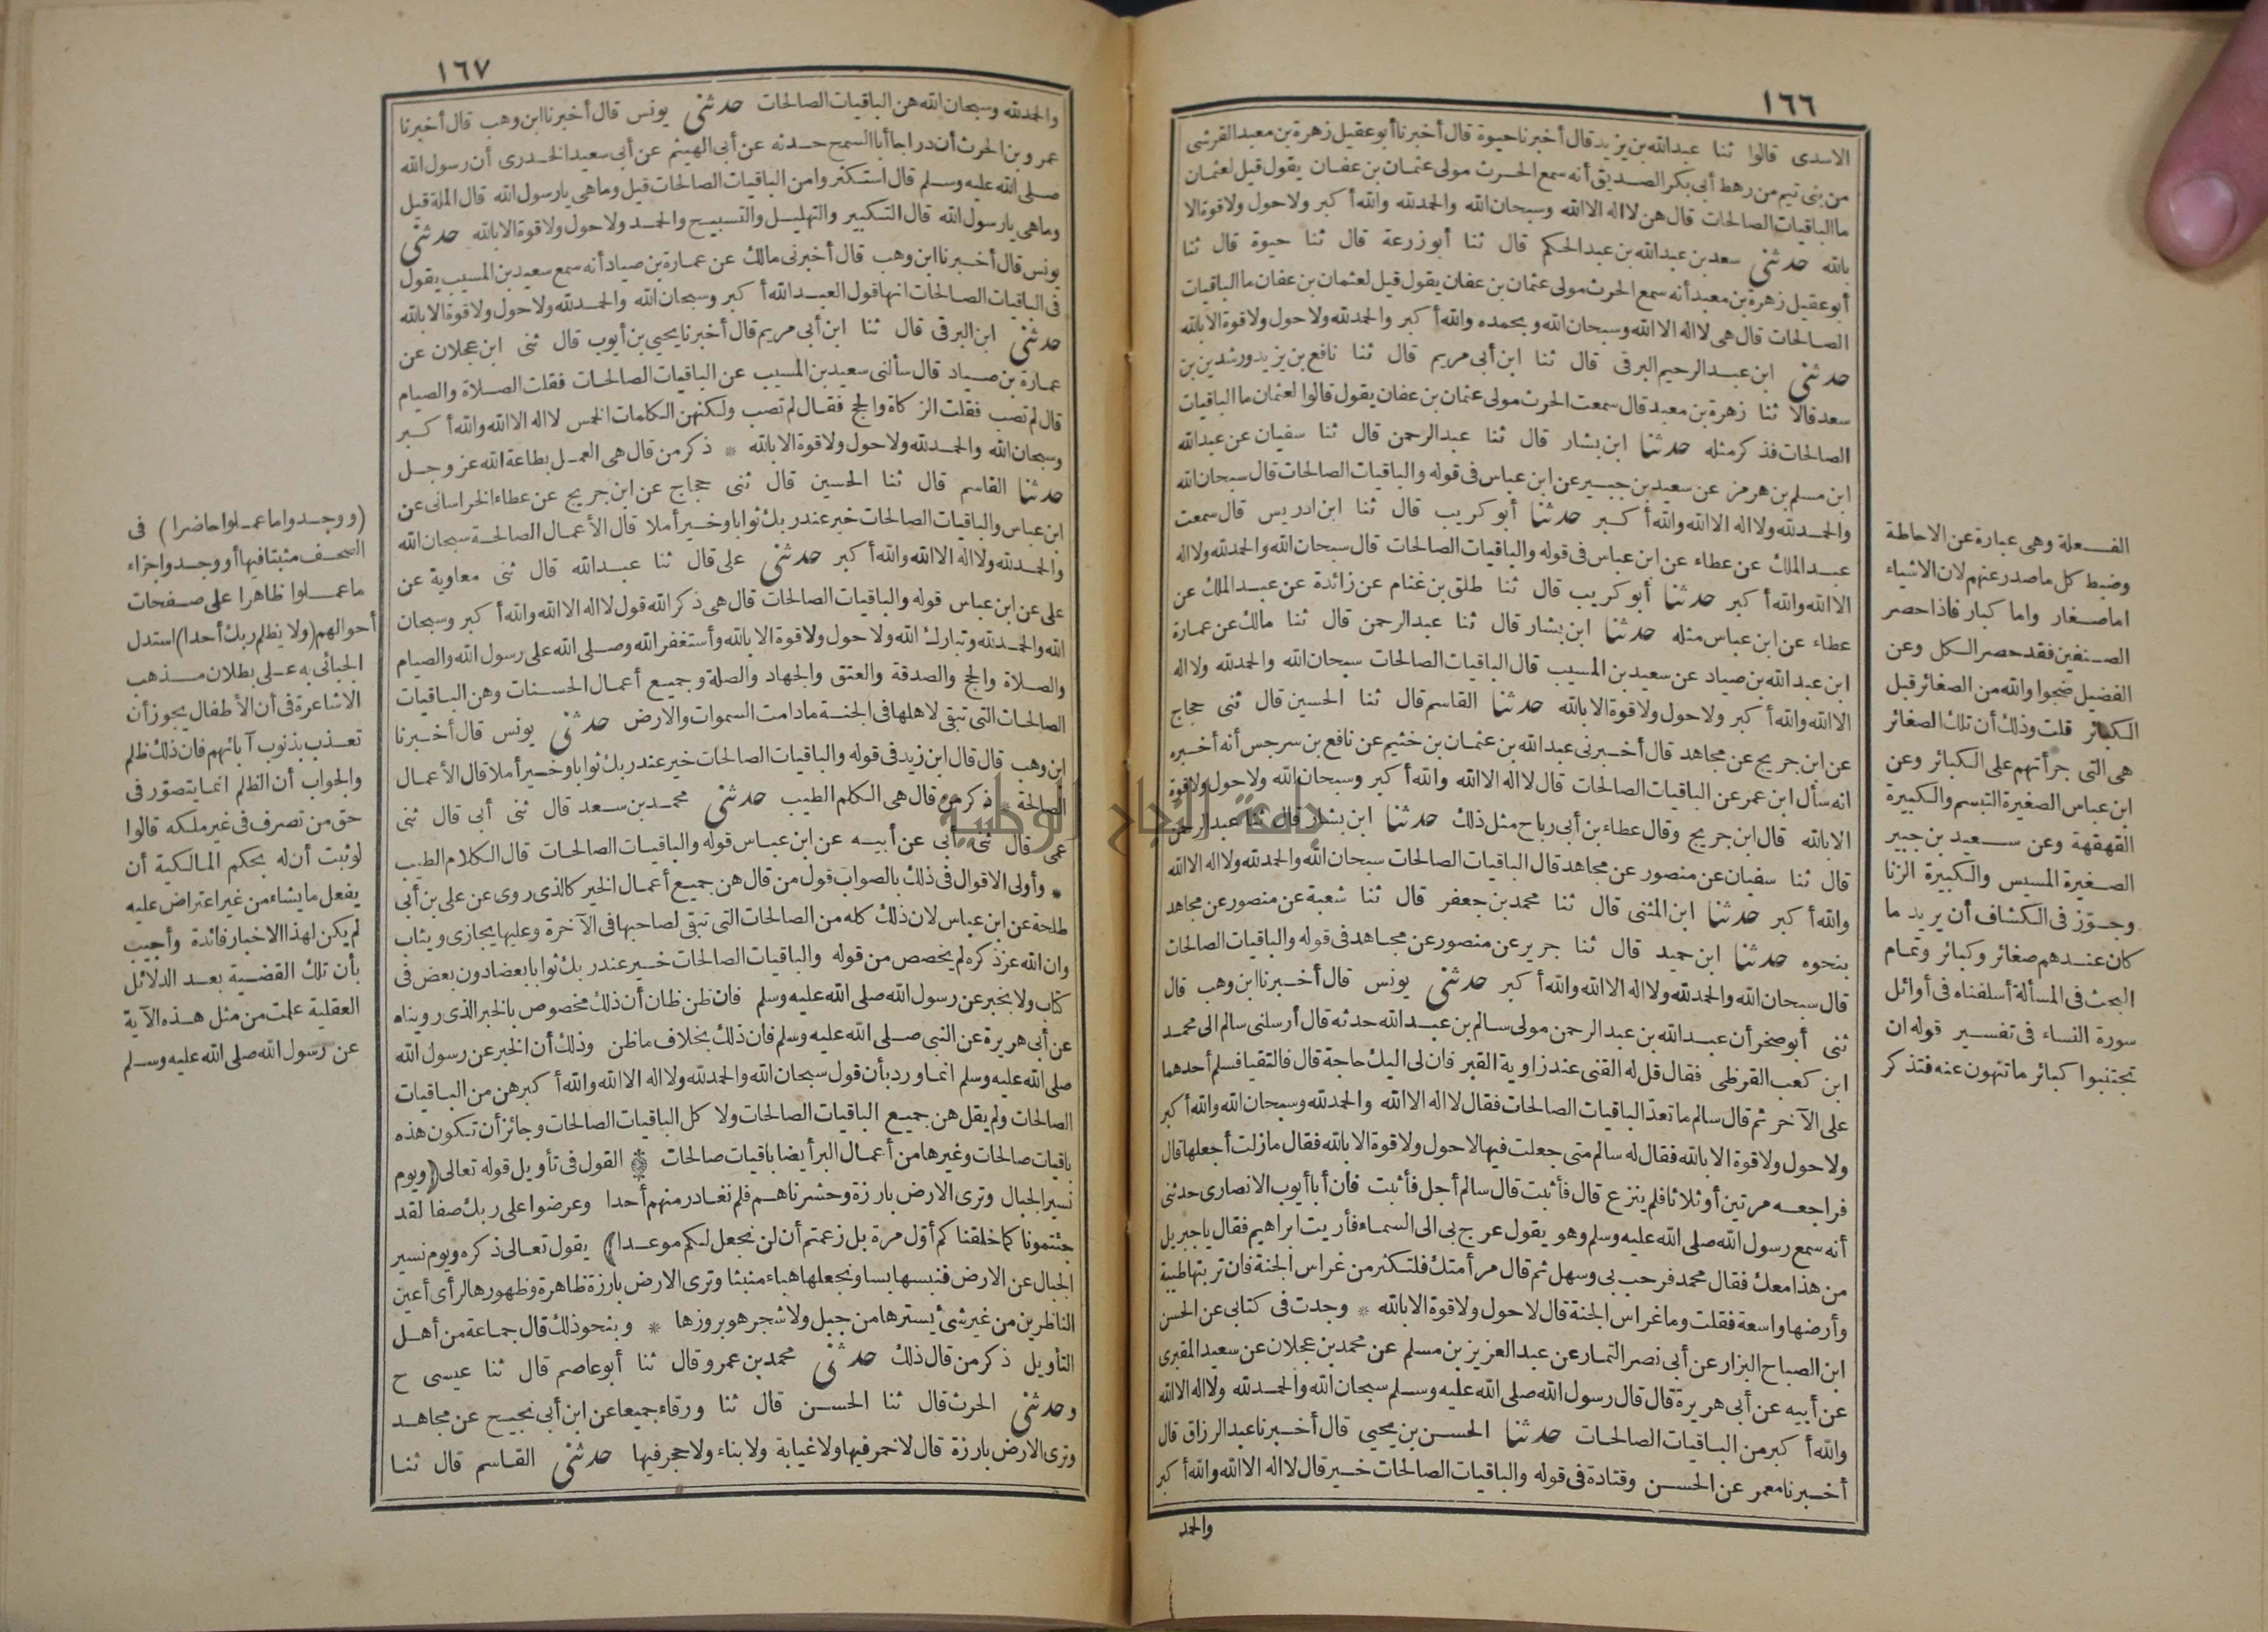 ١٦٦
الاسدى قالوا ثنا عبدالله بن يزيد قال أخبرنا حيوة قال أخبرنا أبو عقيل زهرة بن معبد القرشى
من بنى تيم من رهط أبى بكر الصديق أنه سمع الحرث مولى عثمان بن عفان يقول قيل لعثمان
ما الباقيات الصالحات قال هن لا اله الا الله وسبحان الله والحمدلله والله أكبر ولا حول ولا قوة الا
بالله حدثنى سعد بن عبدالله بن عبدالحكم قال ثنا أبو زرعة قال ثنا حيوة قال ثنا
أبو عقيل زهرة بن معبد أنه سمع الحرث مولى عثمان بن عفان يقول قيل لعثمان بن عفان ما الباقيات
الصالحات قال هى لا اله الا الله وسبحان الله وبحمده والله أكبر والحمدلله ولا حول ولا قوة الا بالله
حدثنى ابن عبدالرحيم البرقى قال ثنا ابن أبى مريم قال ثنا نافع بن يزيد ورشدين بن
سعد قالا ثنا زهرة بن معبد قال سمعت الحرث مولى عثمان بن عفان يقول قالوا لعثمان ما الباقيات
الصالحات فذكر مثله حدثنا ابن بشار قال ثنا عبدالرحمن قال ثنا سفيان عن عبدالله
ابن مسلم بن هرمز عن سعيد بن جبير عن ابن عباس فى قوله والباقيات الصالحات قال سبحان الله
والحمدلله ولا اله الا الله والله أكبر حدثنا أبو كريب قال ثنا ابن ادريس قال سمعت
عبدالملك عن عطاء عن ابن عباس فى قوله والباقيات الصالحات قال سبحان الله والحمدلله ولا اله
الا الله والله أكبر حدثنا أبو كريب قال ثنا طلق بن غنام عن زائدة عن عبدالملك عن
عطاء عن ابن عباس مثله حدثنا ابن بشار قال ثنا عبدالرحمن قال ثنا مالك عن عمارة
ابن عبدالله بن صياد عن سعيد بن المسيب قال الباقيات الصالحات سبحان الله والحمدلله ولا اله
الا الله والله أكبر ولا حول ولا قوة الا بالله حدثنا القاسم قال ثنا الحسين قال ثنى حجاج
عن ابن جريج عن مجاهد قال أخبرنى عبدالله بن عثمان بن خثيم عن نافع بن سرجس أنه أخبره
انه سأل ابن عمر عن الباقيات الصالحات قال لا اله الا الله والله أكبر وسبحان الله ولا حول ولا قوة
الا بالله قال ابن جريج وقال عطاء بن أبى رباح مثل ذلك حدثنا ابن بشار قال ثنا عبدالرحمن
قال ثنا سفيان عن منصور عن مجاهد قال الباقيات الصالحات سبحان الله والحمدلله ولا اله الا الله
والله أكبر حدثنا ابن المثنى قال ثنا محمد بن جعفر قال ثنا شعبة عن منصور عن مجاهد
بنحوه حدثنا ابن حميد قال ثنا جرير عن منصور عن مجاهد فى قوله والباقيات الصالحات
قال سبحان الله والحمدلله ولا اله الا الله والله أكبر حدثنى يونس قال أخبرنا ابن وهب قال
ثنى أبو صخر أن عبدالله بن عبدالرحمن مولى سالم بن عبدالله حدثه قال أرسلنى سالم الى محمد
ابن كعب القرظى فقال قل له القنى عند زاوية القبر فان لى اليك حاجة قال فالتقيا فسلم أحدهما
على الآخر ثم قال سالم ما تعد الباقيات الصالحات فقال لا اله الا الله والحمدلله وسبحان الله والله أكبر
ولا حول ولا قوة الا بالله فقال له سالم متى جعلت فيها لا حول ولا قوة الا بالله فقال ما زلت أجعلها قال
فراجعه مرتين أو ثلاثا فلم ينزع قال فأثبت قال سالم أجل فأثبت فان أبا أيوب الانصارى حدثنى
أنه سمع رسول الله صلى الله عليه وسلم وهو يقول عرج بى الى السماء فأريت ابراهيم فقال يا جبريل
من هذا معك فقال محمد فرحب بى وسهل ثم قال مر أمتك فلتكثر من غراس الجنة فان تربتها طيبة
وأرضها واسعة فقلت وما غراس الجنة قال لا حول ولا قوة الا بالله * وجدت فى كتابى عن الحسن
ابن الصباح البزار عن أبى نصر التمار عن عبدالعزيز بن مسلم عن محمد بن عجلان عن سعيد المقبرى
عن أبيه عن أبى هريرة قال قال رسول الله صلى الله عليه وسلم سبحان الله والحمدلله ولا اله الا الله
والله أكبر من الباقيات الصالحات حدثنا الحسن بن يحيى قال أخبرنا عبدالرزاق قال
أخبرنا معمر عن الحسن وقتادة فى قوله والباقيات الصالحات خير قال لا اله الا الله والله أكبر
والحمد
الفعلة وهى عبارة عن الاحاطة
وضبط كل ما صدر عنهم لان الاشياء
اما صغار واما كبار فاذا حصر
الصنفين فقد حصر الكل وعن
الفضيل ضجوا والله من الصغائر قبل
الكبائر قلت وذلك أن تلك الصغائر
هى التى جرأتهم على الكبائر وعن
ابن عباس الصغيرة التبسم والكبيرة
القهقهة وعن سعيد بن جبير
الصغيرة المسيس والكبيرة الزنا
وجوّز فى الكشاف أن يريد ما
كان عندهم صغائر وكبائر وتمام
البحث فى المسألة أسلفناه فى أوائل
سورة النساء فى تفسير قوله ان
تجتنبوا كبائر ما تنهون عنه فتذكر
١٦٧
والحمدلله وسبحان الله هن الباقيات الصالحات حدثنى يونس قال أخبرنا ابن وهب قال أخبرنا
عمرو بن الحرث أن دراجا أبا السمح حدثه عن أبى الهيثم عن أبى سعيد الخدرى أن رسول الله
صلى الله عليه وسلم قال استكثروا من الباقيات الصالحات قيل وما هى يا رسول الله قال الملة قيل
وما هى يا رسول الله قال التكبير والتهليل والتسبيح والحمد ولا حول ولا قوة الا بالله حدثنى
يونس قال أخبرنا ابن وهب قال أخبرنى مالك عن عمارة بن صياد أنه سمع سعيد بن المسيب يقول
فى الباقيات الصالحات انها قول العبد الله أكبر وسبحان الله والحمدلله ولا حول ولا قوة الا بالله
حدثنى ابن البرقى قال ثنا ابن أبى مريم قال أخبرنا يحيى بن أيوب قال ثنى ابن عجلان عن
عمارة بن صياد قال سألنى سعيد بن المسيب عن الباقيات الصالحات فقلت الصلاة والصيام
قال لم تصب فقلت الزكاة والحج فقال لم تصب ولكنهن الكلمات الخمس لا اله الا الله والله أكبر
وسبحان الله والحمدلله ولا حول ولا قوة الا بالله * ذكر من قال هى العمل بطاعة الله عز وجل
حدثنا القاسم قال ثنا الحسين قال ثنى حجاج عن ابن جريج عن عطاء الخراسانى عن
ابن عباس والباقيات الصالحات خير عند ربك ثوابا وخير أملا قال الأعمال الصالحة سبحان الله
والحمدلله ولا اله الا الله والله أكبر حدثنى على قال ثنا عبدالله قال ثنى معاوية عن
على عن ابن عباس قوله والباقيات الصالحات قال هى ذكر الله قول لا اله الا الله والله أكبر وسبحان
الله والحمدلله وتبارك الله ولا حول ولا قوة الا بالله وأستغفر الله وصلى الله على رسول الله والصيام
والصلاة والحج والصدقة والعتق والجهاد والصلة وجميع أعمال الحسنات وهن الباقيات
الصالحات التى تبقى لاهلها فى الجنة ما دامت السموات والارض حدثنى يونس قال أخبرنا
ابن وهب قال قال ابن زيد فى قوله والباقيات الصالحات خير عند ربك ثوابا وخير أملا قال الأعمال
الصالحة * ذكر من قال هى الكلم الطيب حدثنى محمد بن سعد قال ثنى أبى قال ثنى
عمى قال ثنى أبى عن أبيه عن ابن عباس قوله والباقيات الصالحات قال الكلام الطيب
* وأولى الاقوال فى ذلك بالصواب قول من قال هن جميع أعمال الخير كالذى روى عن على بن أبى
طلحة عن ابن عباس لان ذلك كله من الصالحات التى تبقى لصاحبها فى الآخرة وعليها يجازى ويثاب
وان الله عز ذكره لم يخصص من قوله والباقيات الصالحات خير عند ربك ثوابا بعضا دون بعض فى
كتاب ولا بخبر عن رسول الله صلى الله عليه وسلم فان ظن ظان أن ذلك مخصوص بالخبر الذى رويناه
عن أبى هريرة عن النبى صلى الله عليه وسلم فان ذلك بخلاف ما ظن وذلك أن الخبر عن رسول الله
صلى الله عليه وسلم انما ورد بأن قول سبحان الله والحمدلله ولا اله الا الله والله أكبر هن من الباقيات
الصالحات ولم يقل هن جميع الباقيات الصالحات ولا كل الباقيات الصالحات وجائز أن تكون هذه
باقيات صالحات وغيرها من أعمال البر أيضا باقيات صالحات * القول فى تأويل قوله تعالى (ويوم
نسير الجبال وترى الارض بارزة وحشرناهم فلم نغادر منهم أحدا وعرضوا على ربك صفا لقد
جئتمونا كما خلقناكم أول مرة بل زعمتم أن لن نجعل لكم موعدا) يقول تعالى ذكره ويوم نسير
الجبال عن الارض فنبسها بسا ونجعلها هباء منبثا وترى الارض بارزة ظاهرة وظهورها لرأى أعين
الناظرين من غير شئ يسترها من جبل ولا شجر هو بروزها * وبنحو ذلك قال جماعة من أهل
التأويل ذكر من قال ذلك حدثنى محمد بن عمرو قال ثنا أبو عاصم قال ثنا عيسى ح
وحدثنى الحرث قال ثنا الحسن قال ثنا ورقاء جميعا عن ابن أبى نجيح عن مجاهد
وترى الارض بارزة قال لا خمر فيها ولا غيابة ولا بناء ولا حجر فيها حدثنى القاسم قال ثنا
(ووجدوا ما عملوا حاضرا) فى
الصحف مثبتا فيها أو وجدوا جزاء
ما عملوا ظاهرا على صفحات
أحوالهم (ولا يظلم ربك أحدا) استدل
الجبائى به على بطلان مذهب
الاشاعرة فى أن الأطفال يجوز أن
تعذب بذنوب آبائهم فان ذلك ظلم
والجواب أن الظلم انما يتصوّر فى
حق من تصرف فى غير ملكه قالوا
لو ثبت أن له بحكم المالكية أن
يفعل ما يشاء من غير اعتراض عليه
لم يكن لهذا الاخبار فائدة وأجيب
بأن تلك القضية بعد الدلائل
العقلية علمت من مثل هذه الآية
عن رسول الله صلى الله عليه وسلم
جامعة النجاح الوطنية